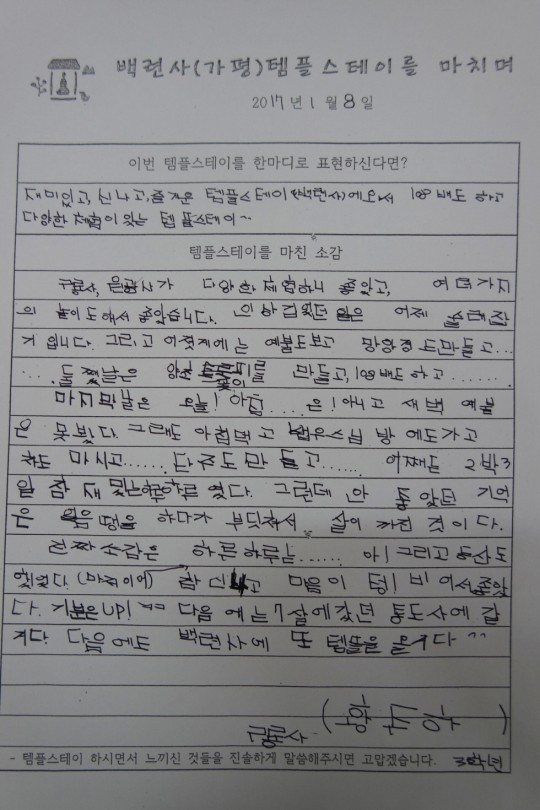 백련사(가평)템플스테이를 마치며
2017년 1월 8일
이번 템플스테이를 한마디로 표현하신다면?
재미있고, 신나고, 즐거운 템플스테이(백련사)에와서 108배도 하고
다양한 체험이 있는 템플스테이~
템플스테이를 마친 소감
다양한체험하니 좋았고, 여러가지
의 놀이도해서 좋았습니다. 어제
거 입니다. 그리고 어젓게에는 예불도보고 만들고...
... 둘쨋날은 만들고, 108배도 하고........
마지막날은 오늘! 아침.... 은! 아니고 새벽 예불
은 못봤다. 그래도 아침먹고 스님 방 에도가고
차도 마시고...... 단주도만 들고...... 어쨰든 2박3
일 참 재밌는 였다. 그런데 안 좋았던 기억
은 얼음땡을 하다가 부딪쳐서 살이 까진 것이다.
진짜소감은 하른하루남...... 아! 그리고 등산도
했었다. 참 신나고 마음이 텅! 비어서 좋았
다. 기분은 UP! ^^ 다음 에는 7살에갔던 통도사에 갈
거다. 다음에도 백련사에 또 템플을 올거다 ^^
- 템플스테이 하시면서 느끼신 것들을 진솔하게 말씀해주시면 고맙겠습니다. 3학년